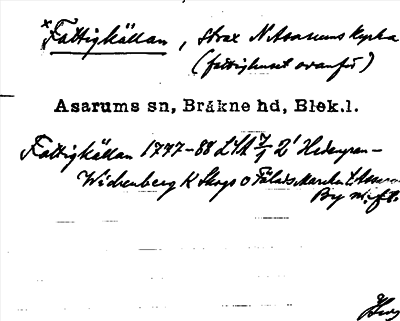 × Fattigkällan, strax N Asarums kyrka
(fattighuset ovanför)
Asarums sn, Bräkne hd, Blek.l.
Fattigkällan 1777-88 LSA 7/1 2'
Wickenberg K Skogs o Fälads Marcken t. Asarum
By